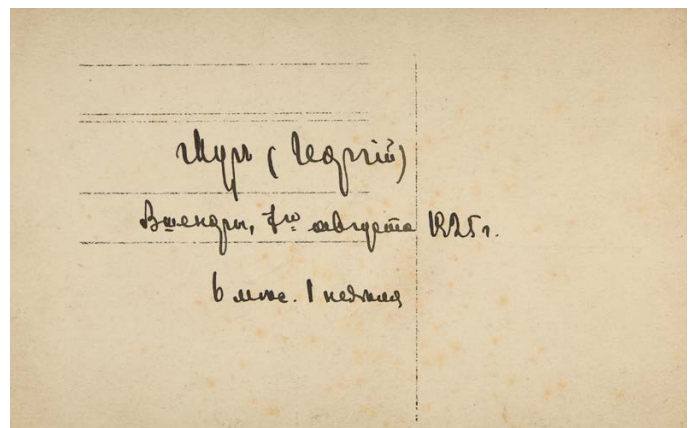 Мур (Георгій)
Вшеноры, 7го августа 1925 г.
6 мѣс. 1 недѣля